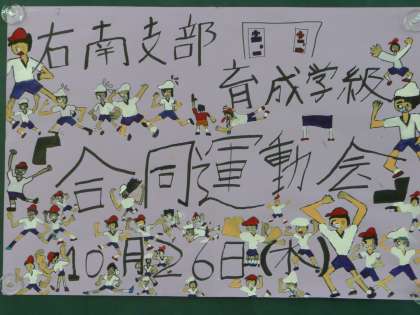 右南支部
育成学級
「合同運動会」
10月26日(木)